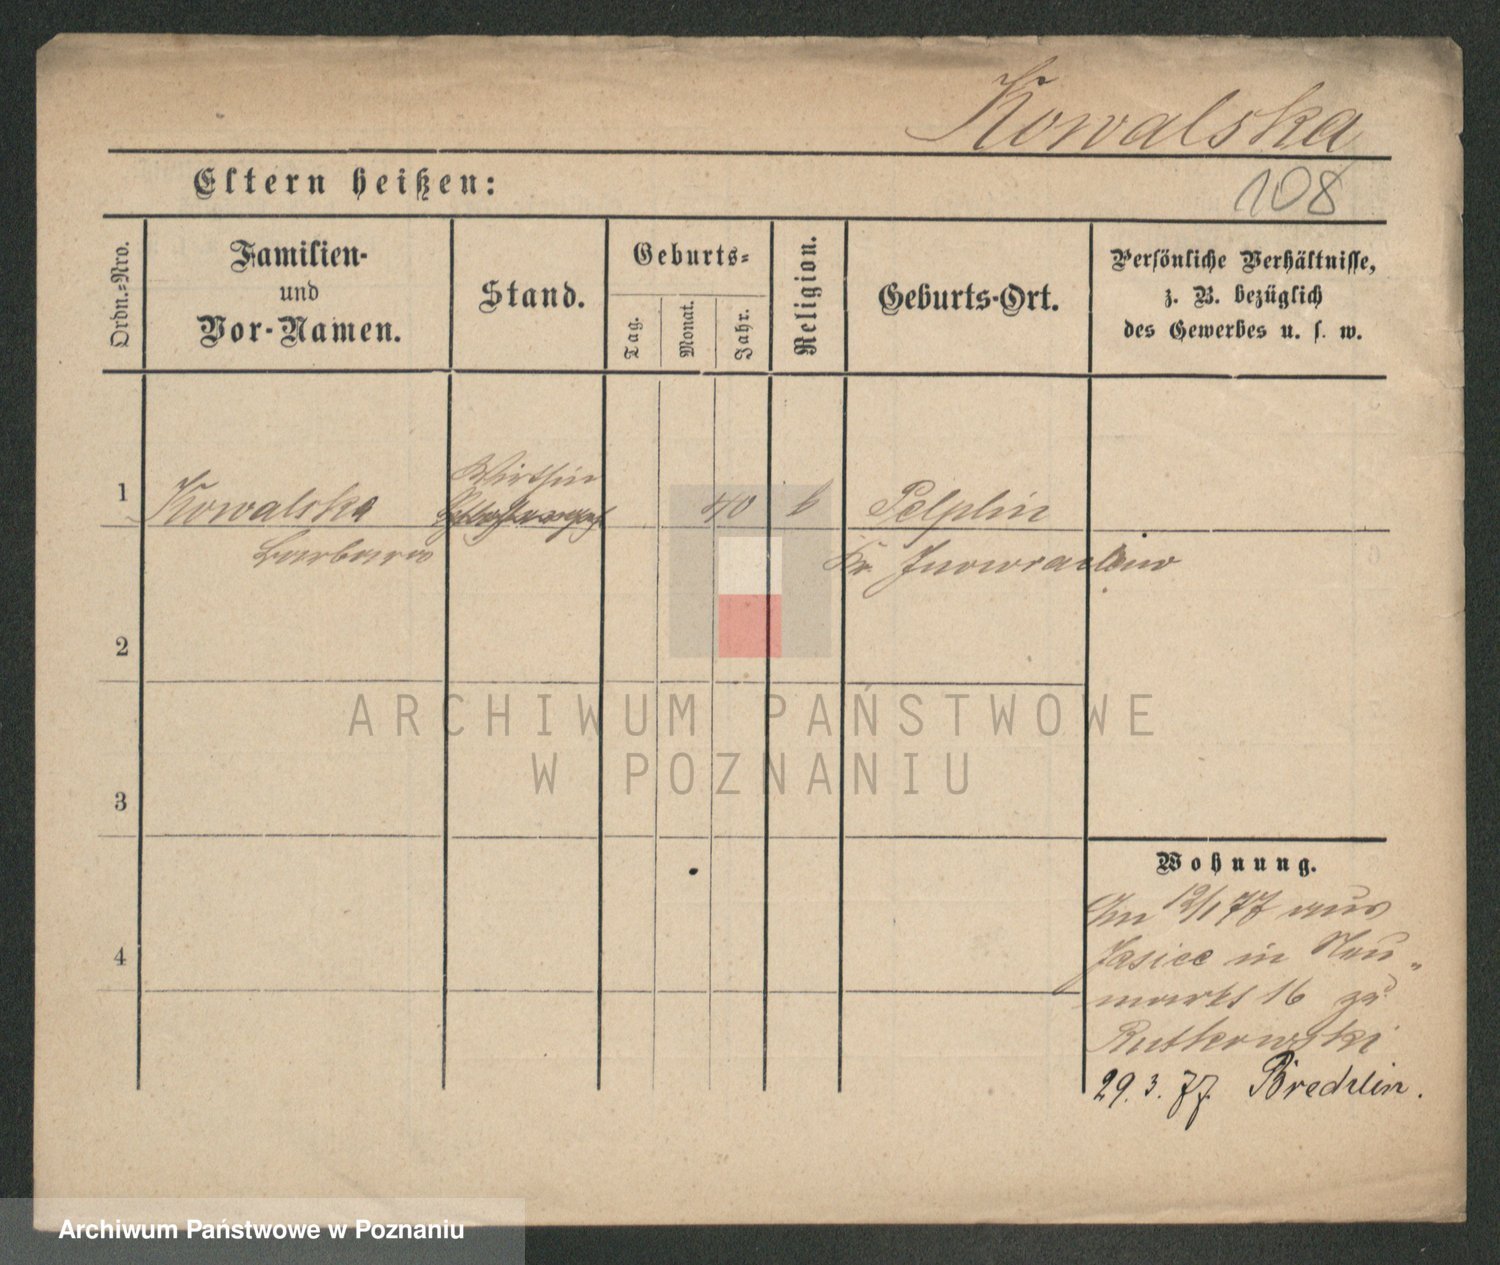 Kowalska
Eltern heißen:
108
Ordn.-Nro.
Familien-
und
Vor-Namen.
Stand.
Geburts-
Tag.
Monat.
Jahr.
Religion.
Geburts-Ort.
Persönliche Verhältnisse,
z. B. bezüglich
des Gewerbes u. s. w.
1
Kowalska
Barbara
Wirthin
40
k
Pelplin
Kr. Inowraclaw
2
3
4
ARCHIWUM PAŃSTWOWE
W POZNANIU
Wohnung.
12/1 77 aus
Jasice in Neu-
markt 16 zu
Rutkowski
29. 3. 77. Bredzlin.
Archiwum Państwowe w Poznaniu